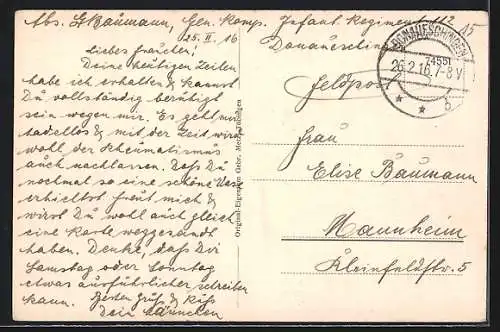 Abs. G. Baumann, Gen. Komp. Infant. Regiment 112
Donaueschingen
25. II. 16
Liebes Frauchen!
Deine heutigen Zeilen
habe ich erhalten & kannst
Du vollständig beruhigt
sein wegen mir. Es geht mir
tadellos & mit der Zeit wird
wohl der Rheumatismus
auch nachlassen. Daß Du
nochmal so eine schöne Vase
erhieltst freut mich &
wirst Du wohl auch gleich
eine Karte weggesandt
haben. Denke, daß Dir
Samstag oder Sonntag
etwas ausführlicher schreiben
kann. Besten Gruß & Kuß
Dein Männchen
Original-Eigentum Gebr. Metz, Tübingen
DONAUESCHINGEN
26.2.16. 7-8 V
* * b
Feldpost
Frau
Elise Baumann
Mannheim
Kleinfeldstr. 5